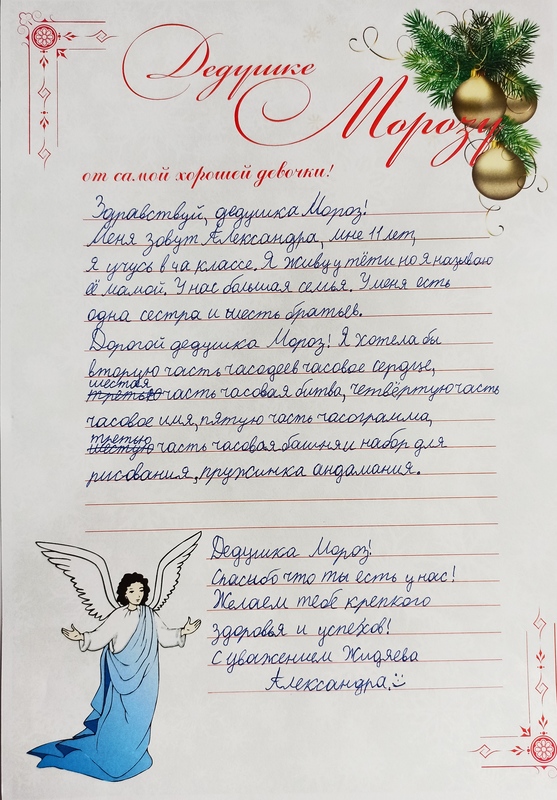 Дедушке
Морозу
от самой хорошей девочки!
Здравствуй, дедушка Мороз!
Меня зовут Александра, мне 11 лет,
Я учусь в 4а классе. Я живу у тёти но я называю
её мамой. У нас большая семья. У меня есть
одна сестра и шесть братьев.
Дорогой дедушка Мороз! Я хотела бы
вторую часть часодеев часовое сердце,
шестая
третью часть часовая битва, четвёртую часть
часовое имя, пятую часть часограмма,
третью
шестую часть часовая башня и набор для
рисования, пружинка андамания.
Дедушка Мороз!
Спасыбо что ты есть у нас!
Желаем тебе крепкого
здоровья и успехов!
С уважением Жидяева
Александра.